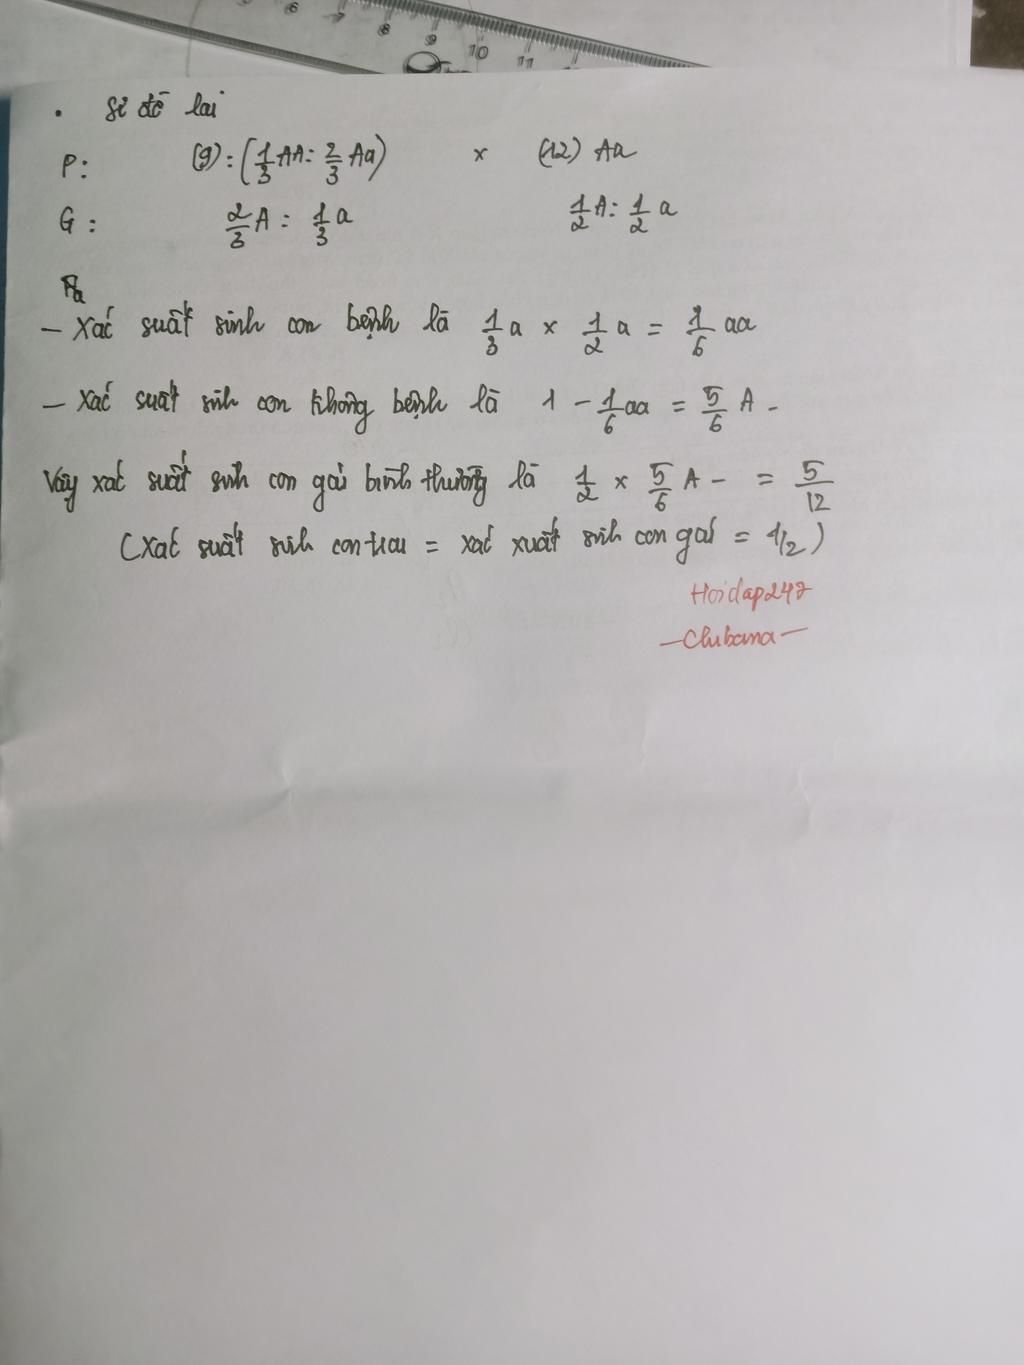 6 7 8 9 10 11
. Sơ đồ lai
P: (9): (1/3 AA : 2/3 Aa) x (12) Aa
G: 2/3 A : 1/3 a 1/2 A : 1/2 a
- Xác suất sinh con bệnh là 1/3 a x 1/2 a = 1/6 aa
- Xác suất sinh con không bệnh là 1 - 1/6 aa = 5/6 A -
Vậy xác suất sinh con gái bình thường là 1/2 x 5/6 A - = 5/12
(Xác suất sinh con trai = xác xuất sinh con gái = 1/2)
Hoidap247
- Chubana -